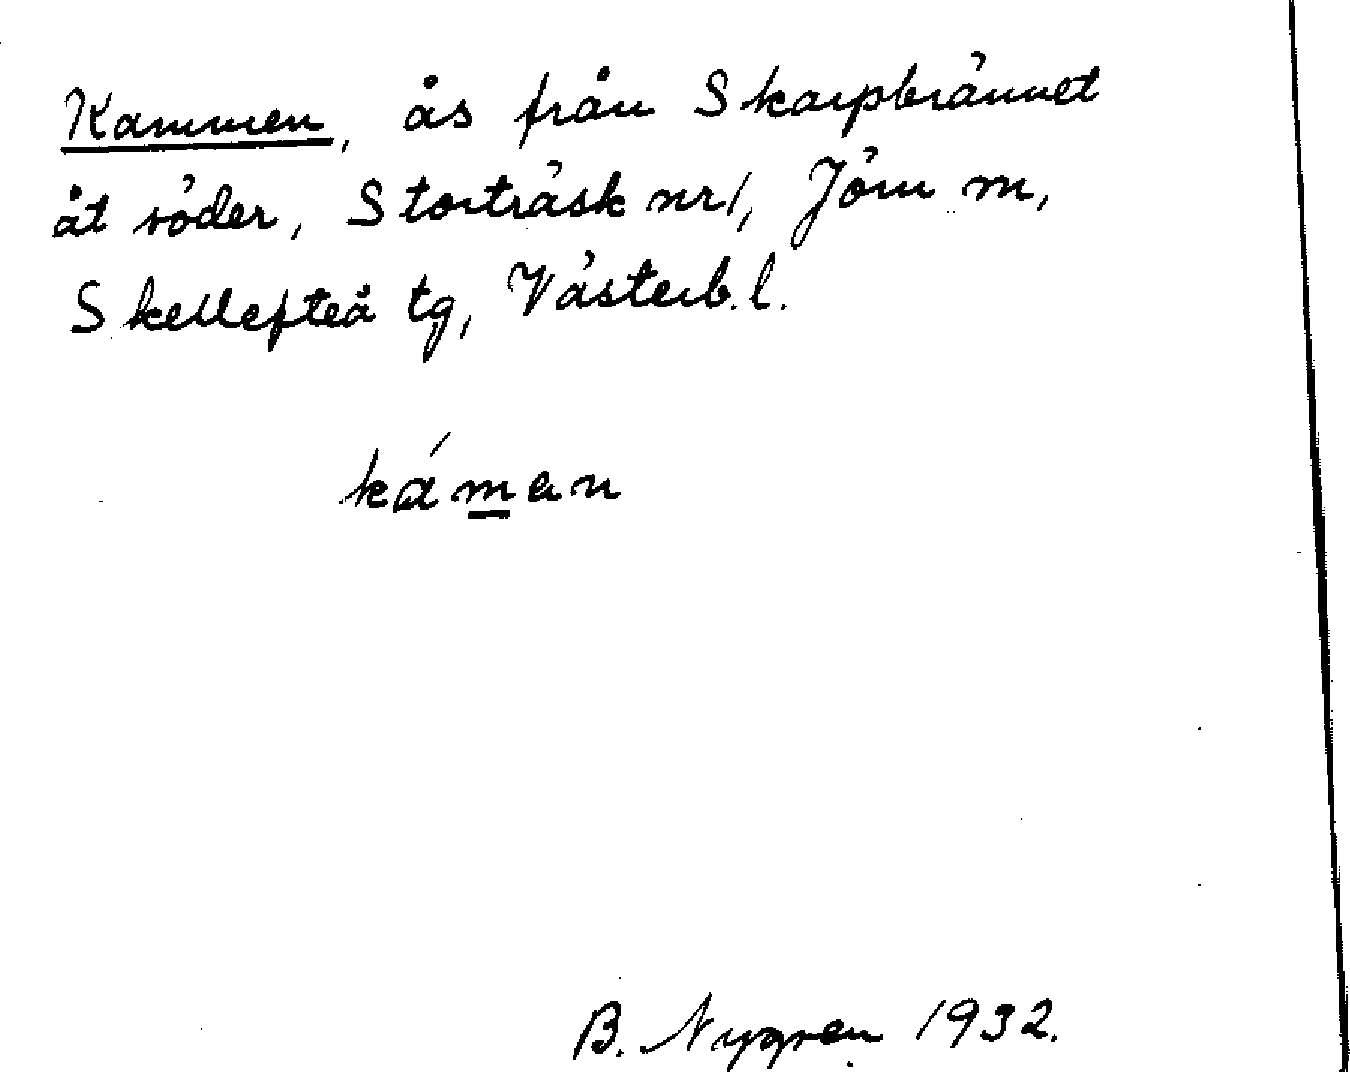 Kammen, ås från Skarpbrännet
åt söder, Storträsk nr 1, Jörn m,
Skellefteå tg, Västerb. l.
káman
B. Nygren 1932.